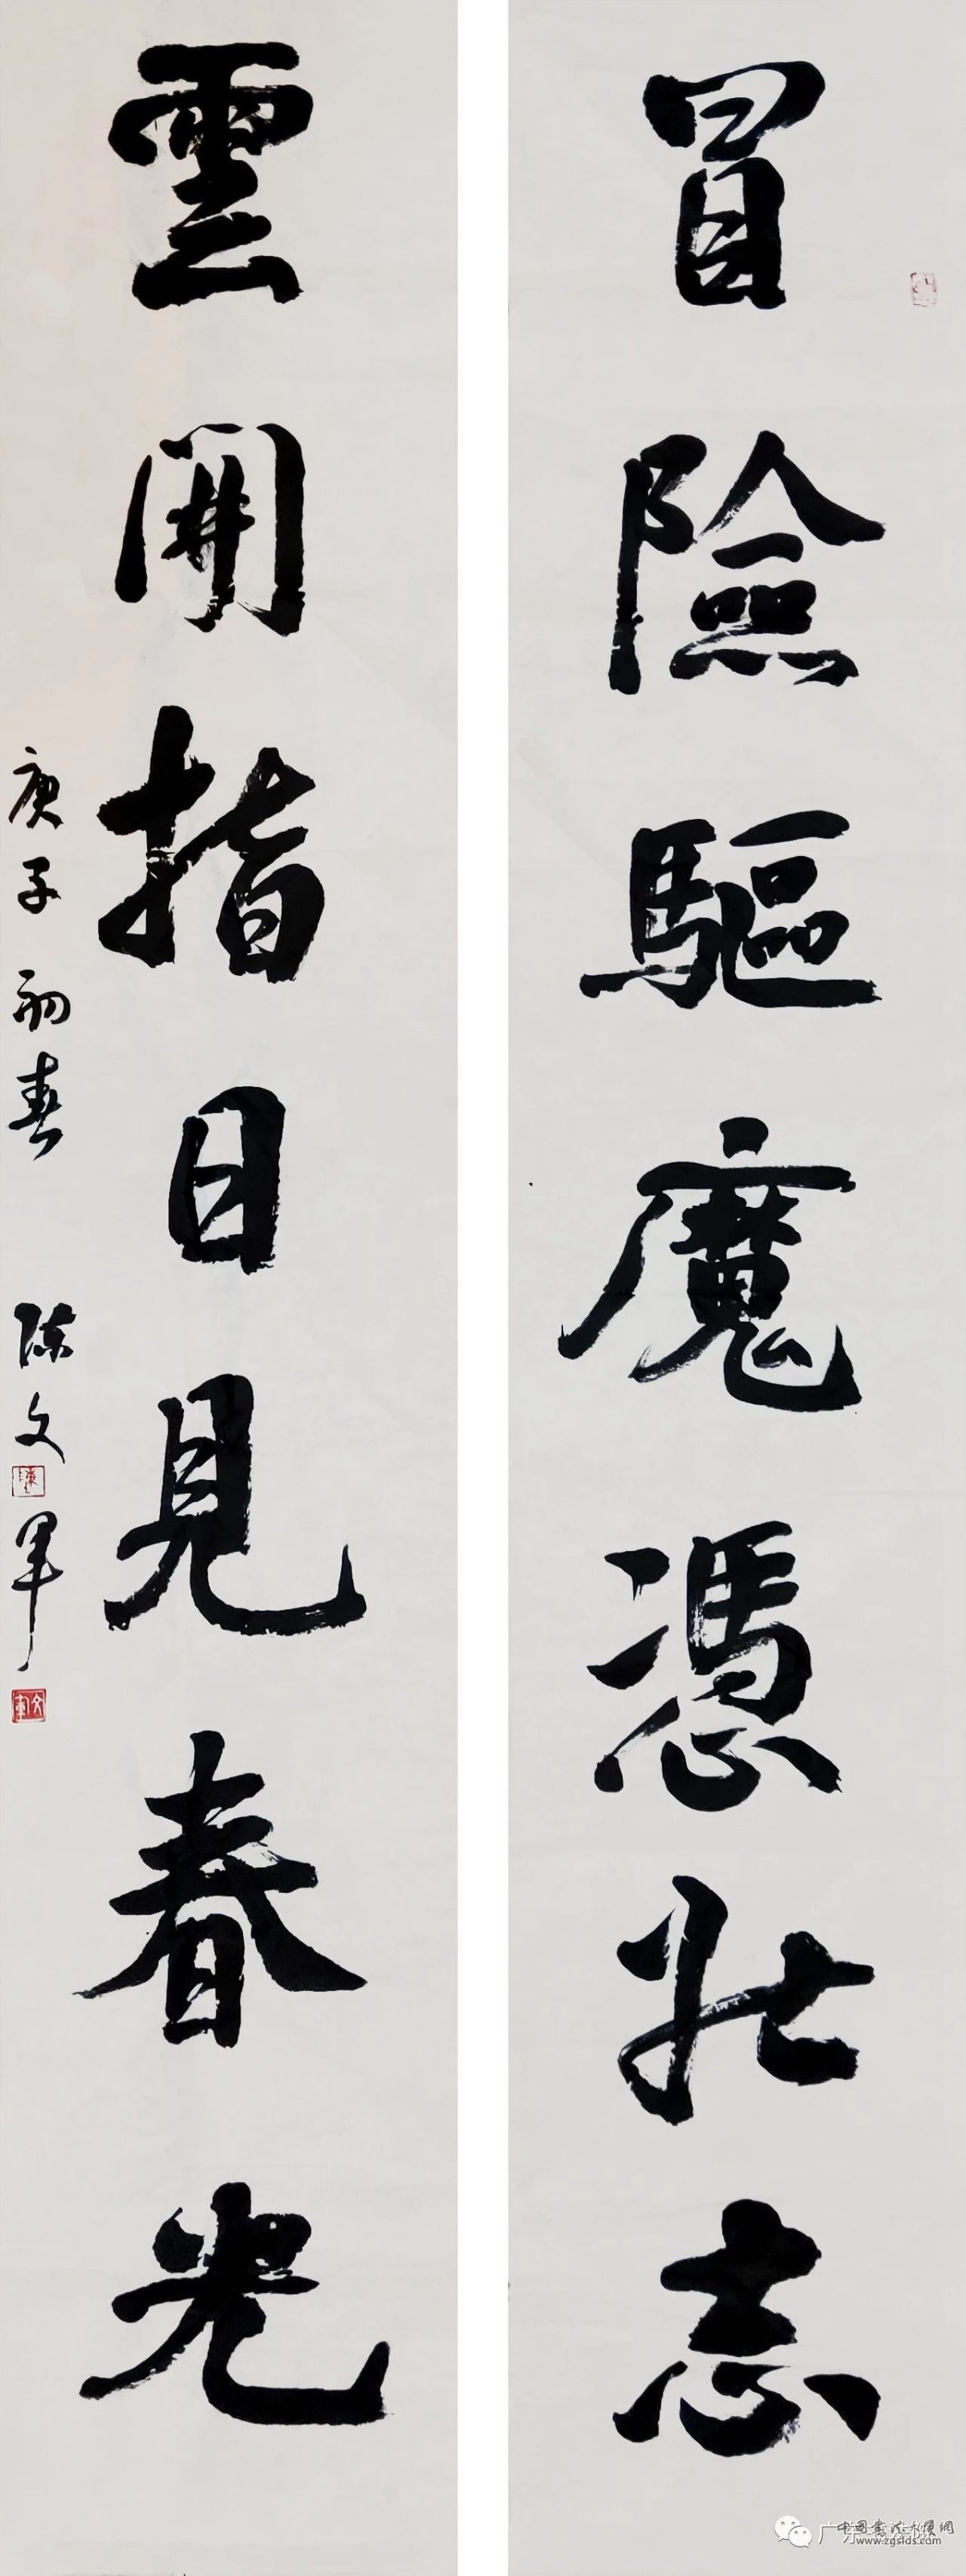 冒險驅魔憑壯志
雲開指日見春光
庚子初春 陈文军
陳
文軍
中国書法大展網
www.zgsfds.com